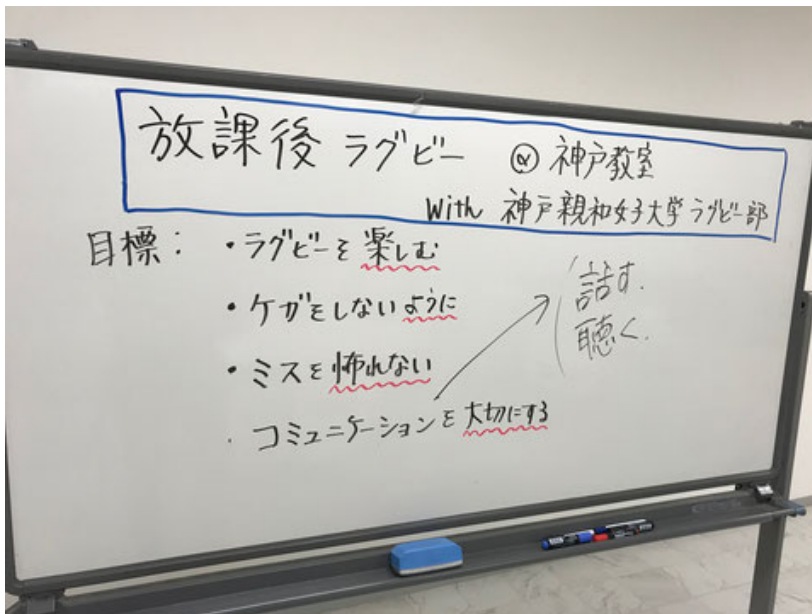 放課後 ラグビー @ 神戸教室
With 神戸親和女子大学 ラグビー部
目標: ・ラグビーを楽しむ
・ケガをしないように
・ミスを怖れない
・コミュニケーションを大切にする
話す.
聴く.